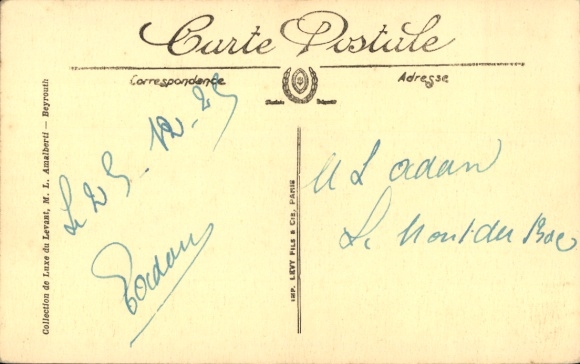 Carte Postale
Correspondance
Adresse
Collection de Luxe du Levant, M. L. Amalberti — Beyrouth
Le 25-12-25
IMP. LÉVY FILS & CIE, PARIS
M L adan
Le Mont-du Bac